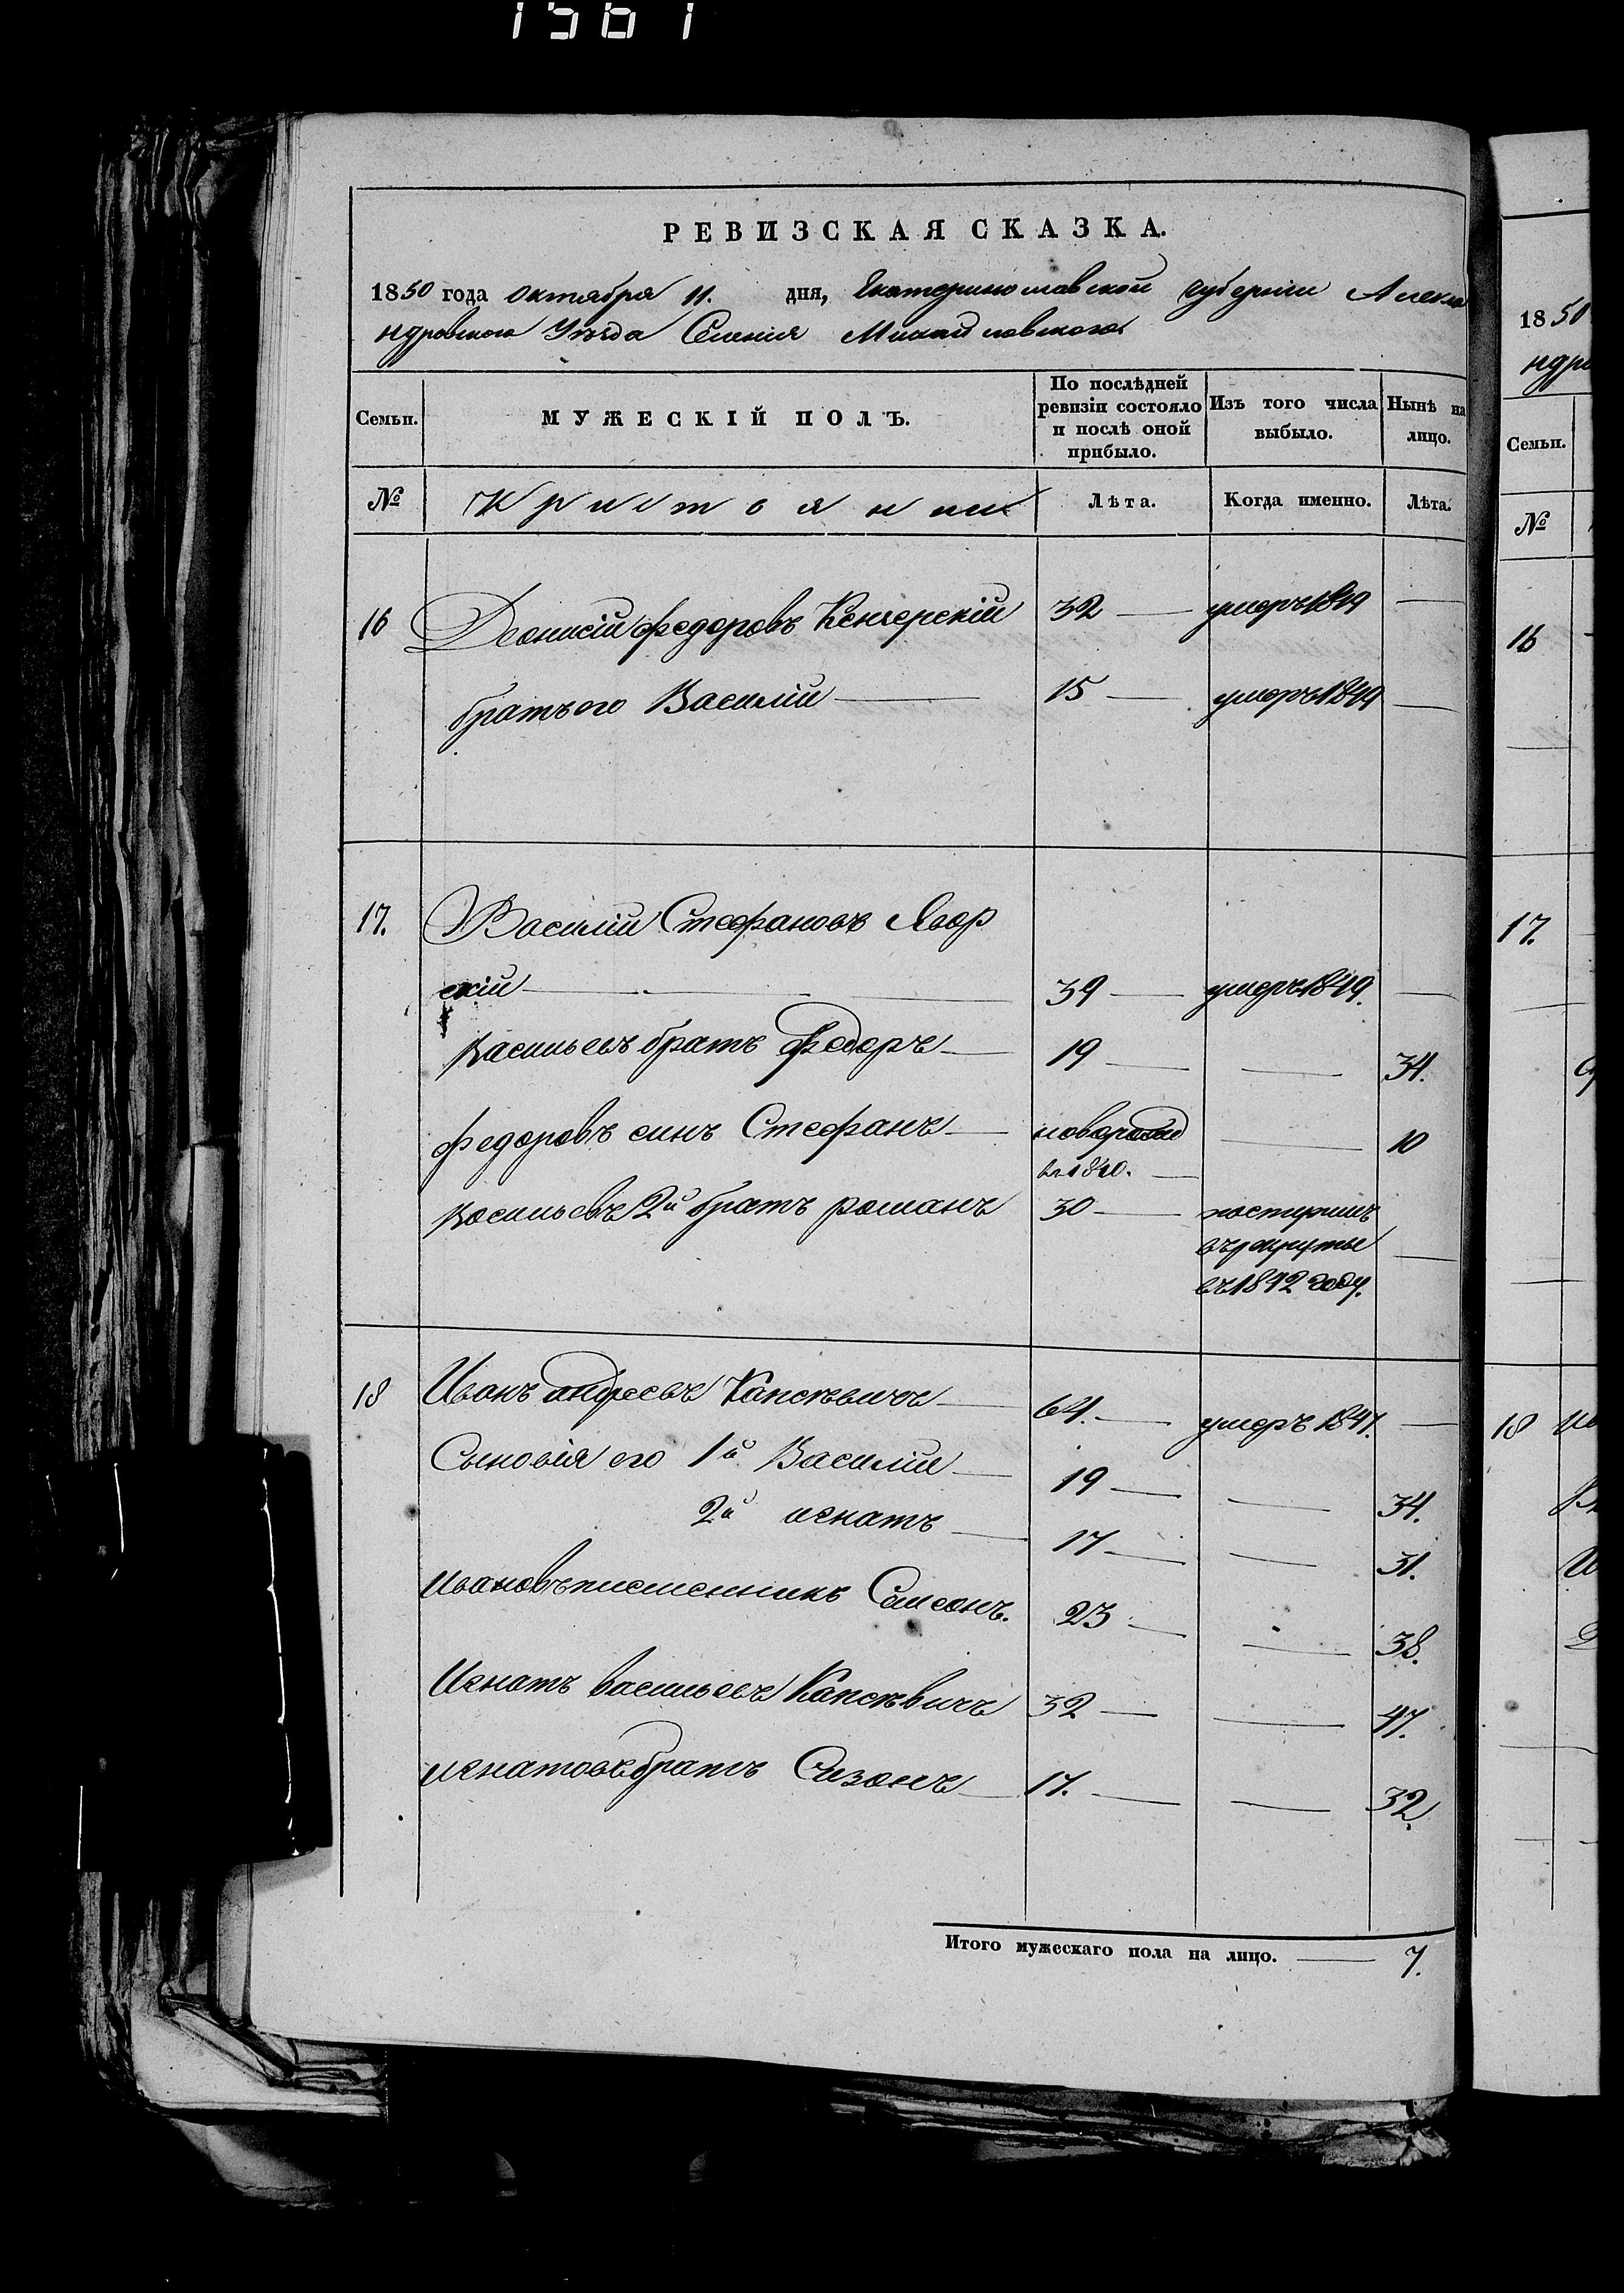 1561
РЕВИЗСКАЯ СКАЗКА.
1850 года Октября 11. дня, Екатеринославской губерніи Алекса
ндровского Уѣзда Селенія Михайловского
Семьи. МУЖЕСКІЙ ПОЛЪ. По послѣдней ревизіи состояло и послѣ оной прибыло. Изъ того числа выбыло. Нынѣ на лицо.
№ Кристояники Лѣта. Когда именно. Лѣта.
16 Деонисій Федоровъ 32 умеръ 1849
братъ его Василій 15 умеръ 1849
17. Василій Стефановъ Явор
скій 39 умеръ 1849.
Васильевъ братъ Федоръ 19 34.
Федоровъ синъ Стефанъ новорожд 10
въ 1840.
Васильевъ 2й братъ романъ 30 поступилъ
въ рекруты
въ 1842 году.
18 Иванъ андреевъ Капсѣвичъ 64. умеръ 1847.
Сыновія его 1й Василій 19 34.
2й игнатъ 17 31.
Ивановъ племенникъ Самсонъ. 23 38.
Игнатъ васильевъ Капсѣвичъ 32 47.
игнатовъ братъ Сизонъ 17. 32.
Итого мужескаго пола на лицо. 7.
1850
ндро
Семьи.
№
16
17.
18 Ив